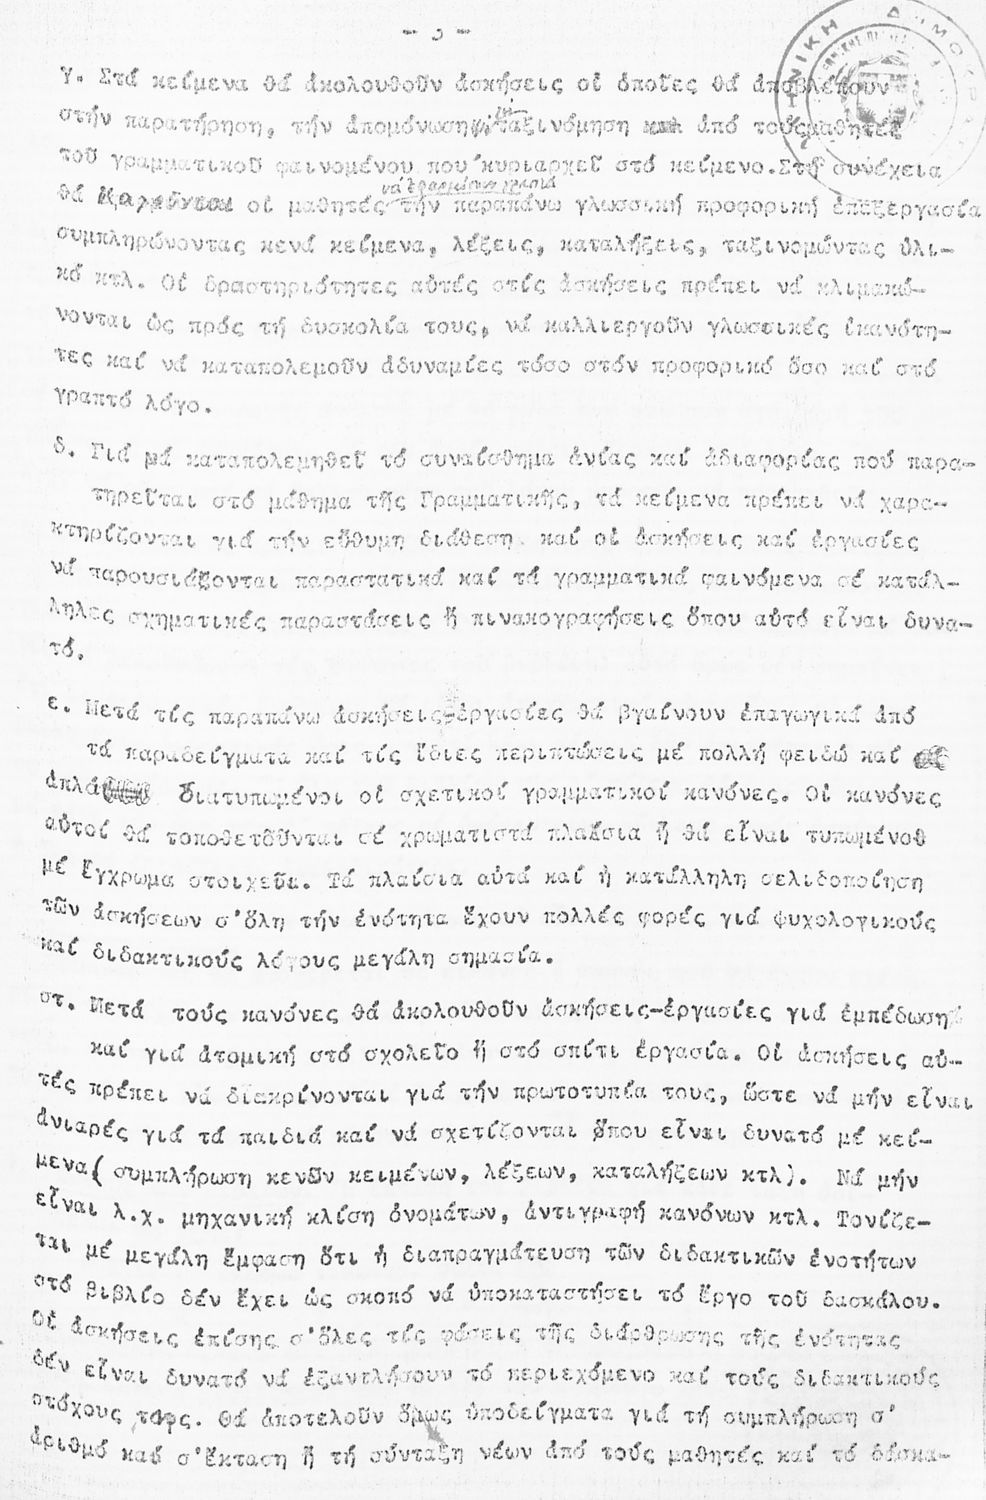 γ. Στά κείμενα θά ἀκολουθοῦν ἀσκήσεις οἱ ὁποῖες θά ἀποβλέπουν
στήν παρατήρηση, τήν ἀπομόνωση, ταξινόμηση ἀπό τούς μαθητές
τοῦ γραμματικοῦ φαινομένου που κυριαρχεῖ στό κείμενο. Στή συνέχεια
θά οἱ μαθητές τήν παραπάνω γλωσσική προφορική ἐπεξεργασία
συμπληρώνοντας κενά κείμενα, λέξεις, καταλήξεις, ταξινομώντας ὑλι-
κό κτλ. Οἱ δραστηριότητες αὐτές στίς ἀσκήσεις πρέπει νά κλιμακώ-
νονται ὡς πρός τή δυσκολία τους, νά καλλιεργοῦν γλωσσικές ἱκανότη-
τες καί νά καταπολεμοῦν ἀδυναμίες τόσο στόν προφορικό ὅσο καί στό
γραπτό λόγο.
δ. Γιά νά καταπολεμηθεῖ τό συναίσθημα ἀνίας καί ἀδιαφορίας πού παρα-
τηρεῖται στό μάθημα τῆς Γραμματικῆς, τά κείμενα πρέπει νά χαρα-
κτηρίζονται γιά τήν εὔθυμη διάθεση καί οἱ ἀσκήσεις καί ἐργασίες
νά παρουσιάζονται παραστατικά καί τά γραμματικά φαινόμενα σέ κατάλ-
ληλες σχηματικές παραστάσεις ἤ πινακογραφήσεις ὅπου αὐτό εἶναι δυνα-
τό.
ε. Μετά τίς παραπάνω ἀσκήσεις-ἐργασίες θά βγαίνουν ἐπαγωγικά ἀπό
τά παραδείγματα καί τίς ἴδιες περιπτώσεις μέ πολλή φειδώ καί
ἁπλά διατυπωμένοι οἱ σχετικοί γραμματικοί κανόνες. Οἱ κανόνες
αὐτοί θά τοποθετοῦνται σέ χρωματιστά πλαίσια ἤ θά εἶναι τυπωμένοθ
μέ ἔγχρωμα στοιχεῖα. Τά πλαίσια αὐτά καί ἡ κατάλληλη σελιδοποίηση
τῶν ἀσκήσεων σ'ὅλη τήν ἑνότητα ἔχουν πολλές φορές γιά ψυχολογικούς
καί διδακτικούς λόγους μεγάλη σημασία.
στ. Μετά τούς κανόνες θά ἀκολουθοῦν ἀσκήσεις-ἐργασίες γιά ἐμπέδωση
καί γιά ἀτομική στό σχολεῖο ἤ στό σπίτι ἐργασία. Οἱ ἀσκήσεις αὐ-
τές πρέπει νά διακρίνονται γιά τήν πρωτοτυπία τους, ὥστε νά μήν εἶναι
ἀνιαρές γιά τά παιδιά καί νά σχετίζονται ὅπου εἶναι δυνατό μέ κεί-
μενα( συμπλήρωση κενῶν κειμένων, λέξεων, καταλήξεων κτλ). Νά μήν
εἶναι λ.χ. μηχανική κλίση ὀνομάτων, ἀντιγραφή κανόνων κτλ. Τονίζε-
ται μέ μεγάλη ἔμφαση ὅτι ἡ διαπραγμάτευση τῶν διδακτικῶν ἑνοτήτων
στό βιβλίο δέν ἔχει ὡς σκοπό νά ὑποκαταστήσει τό ἔργο τοῦ δασκάλου.
Οἱ ἀσκήσεις ἐπίσης σ'ὅλες τίς φάσεις τῆς διάρθρωσης τῆς ἑνότητας
δέν εἶναι δυνατό νά ἐξαντλήσουν τό περιεχόμενο καί τούς διδακτικούς
στόχους τους. Θά ἀποτελοῦν ὅμως ὑποδείγματα γιά τή συμπλήρωση σ'
ἀριθμό καί σ'ἔκταση ἤ τή σύνταξη νέων ἀπό τούς μαθητές καί τό δάσκα-